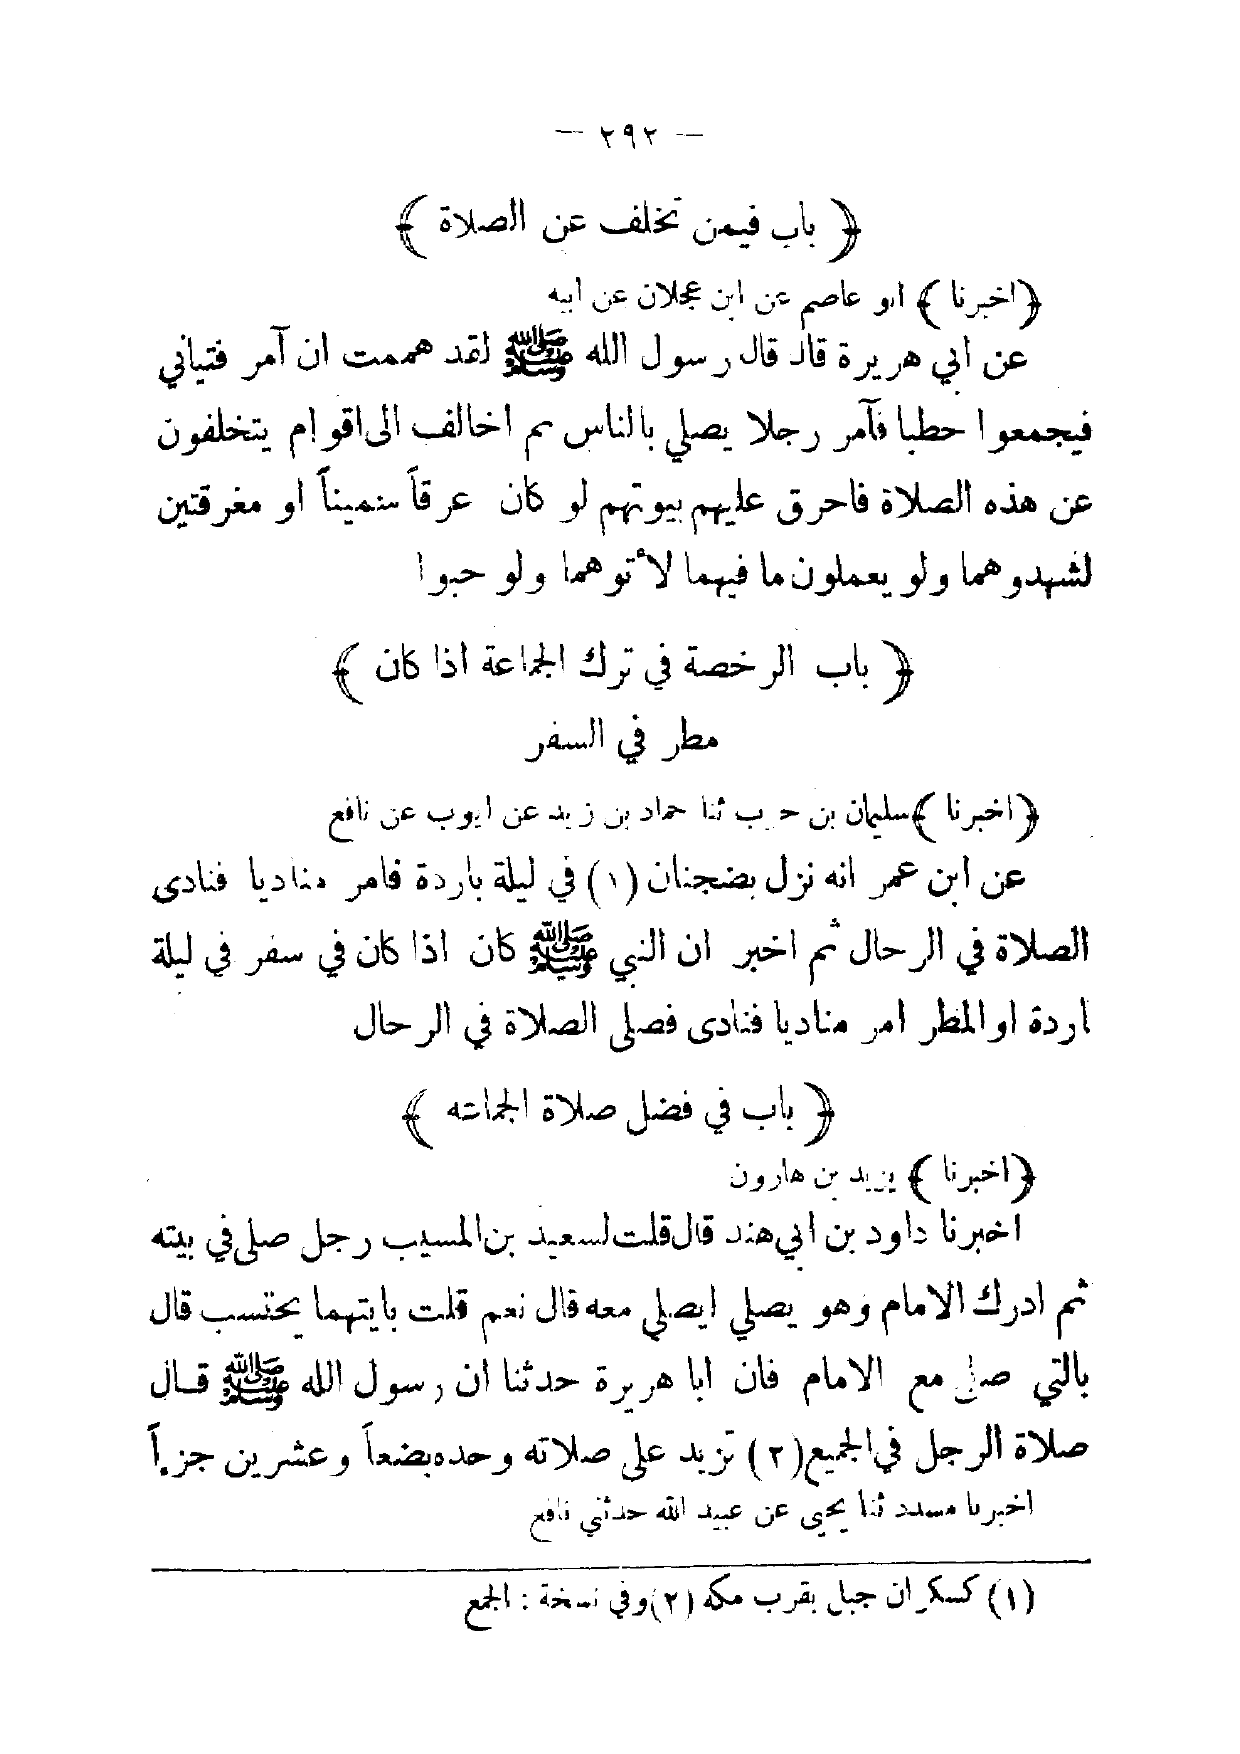 — ٢٩٢ —
﴿ باب فيمن تخلف عن الصلاة ﴾
﴿اخبرنا ﴾ ابو عاصم عن ابن عجلان عن ابيه
عن ابي هريرة قال قال رسول الله ﷺ لقد هممت ان آمر فتياني
فيجمعوا حطبا فآمر رجلا يصلي بالناس ثم اخالف الى اقوام يتخلفون
عن هذه الصلاة فاحرق عليهم بيوتهم لو كان عرقاً سميناً او مغرقتين
لشهدوهما ولو يعملون ما فيهما لأتوهما ولو حبوا
﴿ باب الرخصة في ترك الجماعة اذا كان ﴾
مطر في السفر
﴿اخبرنا ﴾سليمان بن حرب ثنا حماد بن زيد عن ايوب عن نافع
عن ابن عمر انه نزل بضجنان (١) في ليلة باردة فامر مناديا فنادى
الصلاة في الرحال ثم اخبر ان النبي ﷺ كان اذا كان في سفر في ليلة
اردة او المطر امر مناديا فنادى فصلى الصلاة في الرحال
﴿ باب في فضل صلاة الجماعة ﴾
﴿اخبرنا ﴾ يزيد بن هارون
اخبرنا داود بن ابي هند قال قلت لسعيد بن المسيب رجل صلى في بيته
ثم ادرك الامام وهو يصلي ايصلي معه قال نعم قلت بايتهما يحتسب قال
بالتي صلى مع الامام فان ابا هريرة حدثنا ان رسول الله ﷺ قال
صلاة الرجل في الجميع(٢) تزيد على صلاته وحده بضعاً وعشرين جزءاً
اخبرنا مسدد ثنا يحيى عن عبيد الله حدثني نافع
(١) كسكران جبل بقرب مكه (٢) وفي نسخة : الجمع